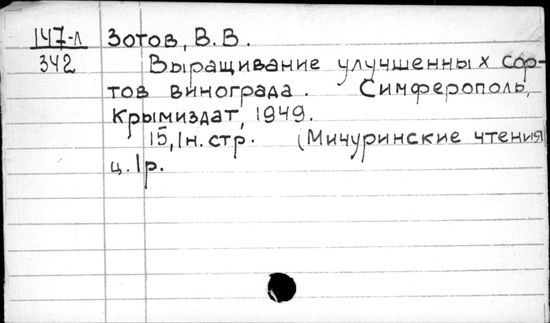 147-л Зотов, В.В.
342 Выращивание улучшенных сор-
тов винограда. Симферополь,
Крымиздат, 1949.
15, 1н. стр. (Мичуринские чтения
ц. 1р.